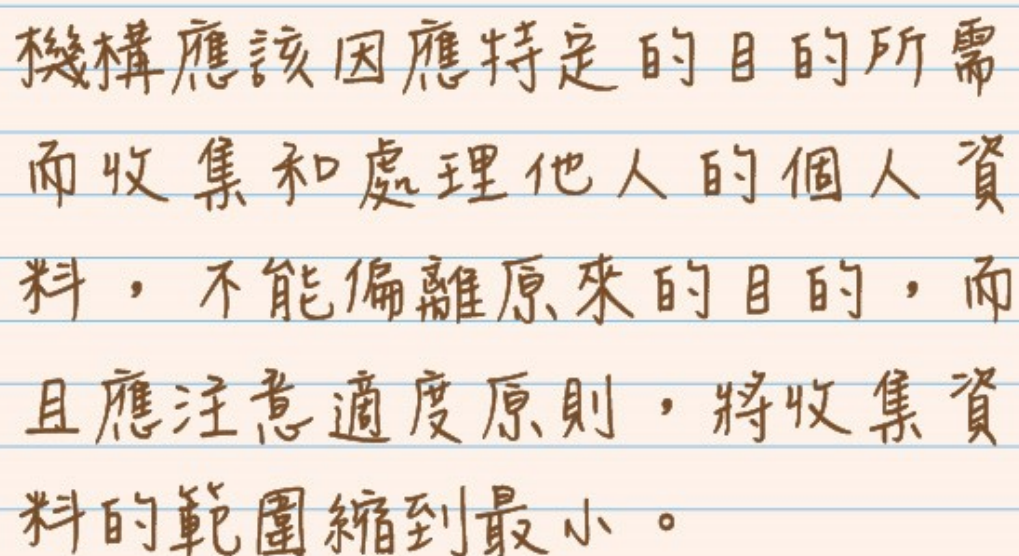 機構應該因應特定的目的所需
而收集和處理他人的個人資
料，不能偏離原來的目的，而
且應注意適度原則，將收集資
料的範圍縮到最小。